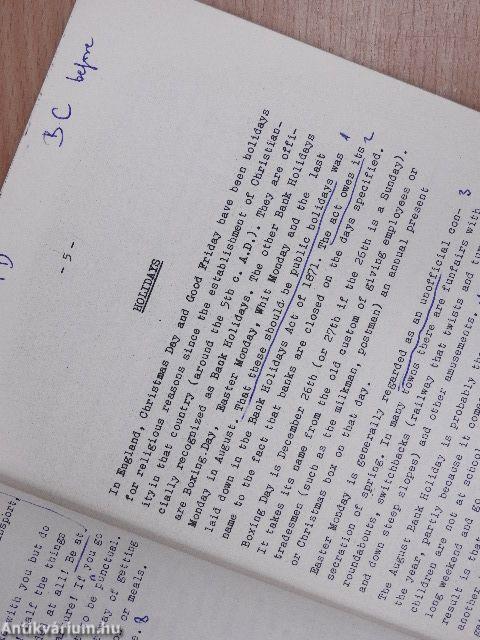 BC before
- 5 -
HOLIDAYS
In England, Christmas Day and Good Friday have been holidays
for religious reasons since the establishment of Christian-
ityin that country (around the 5th c. A.D.). They are offi-
cially recognized as Bank Holidays. The other Bank Holidays
are Boxing.Day, Easter Monday, Whit Monday and the last
Monday in August. That these should be public holidays was 1
laid down in the Bank Holidays Act of 1871. The act owes its 2
name to the fact that banks are closed on the days specified.
Boxing Day is December 26th (or 27th if the 26th is a Sunday).
It takes its name from the old custom of giving employees or
tradesmen (such as the milkman, postman) an annual present
or Christmas box on that day.
Easter Monday is generally regarded as an unofficial con- 3
secration of spring. In many towns there are funfairs with
roundabouts, switchbecks (railway that twists and
and down steep slopes) and other amusements.
The August Bank Holiday is probably the
the year, partly because it
children are not at school
long weekend and go
result is that
another
with you but do
if the things
at all! Be at
if you go
be punctual.
of getting
or meals.
8
Antikvárium.hu